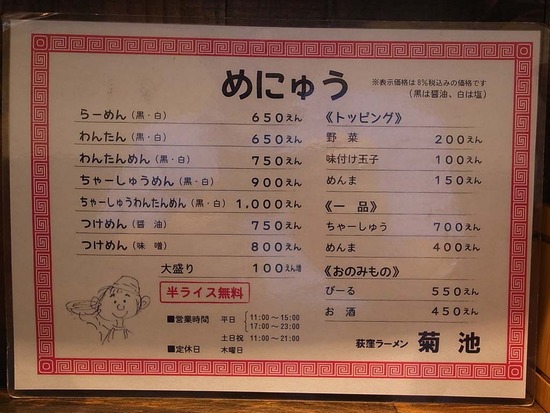 めにゅう
※表示価格は8%税込みの価格です
(黒は醤油、白は塩)
らーめん(黒・白) 650えん
わんたん(黒・白) 650えん
わんたんめん(黒・白) 750えん
ちゃーしゅうめん(黒・白) 900えん
ちゃーしゅうわんたんめん(黒・白) 1,000えん
つけめん(醤 油) 750えん
つけめん(味 噌) 800えん
大盛り 100えん増
半ライス無料
■営業時間 平日 11:00〜15:00
17:00〜23:00
土日祝 11:00〜21:00
■定休日 木曜日
《トッピング》
野 菜 200えん
味付け玉子 100えん
めんま 150えん
《一 品》
ちゃーしゅう 700えん
めんま 400えん
《おのみもの》
びーる 550えん
お 酒 450えん
荻窪ラーメン 菊 池